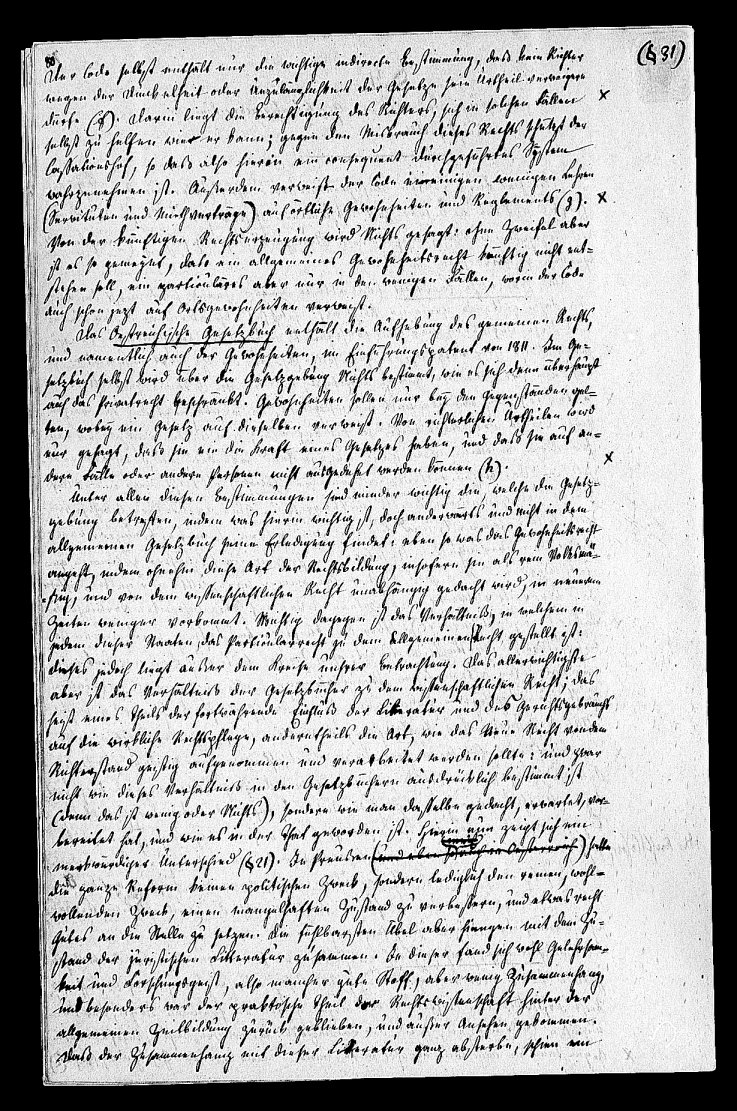 80
(§31)
Der Code selbst enthält nur die wichtige indirecte Bestimmung, daß kein Richter
wegen der Dunkelheit oder Unzulänglichkeit der Gesetze sein Urtheil verweigern
dürfe (f). Darin liegt die Berechtigung des Richters, sich in solchen Fällen
selbst zu helfen wie er kann; gegen den Misbrauch dieses Rechts schützt der
Cassationshof, so daß also hierin ein consequent durchgeführtes System
wahrzunehmen ist. Außerdem verweist der Code in einigen wenigen Lehren
(Servituten und Miethverträge) auf örtliche Gewohnheiten und Reglements (g).
Von der künftigen Rechtserzeugung wird Nichts gesagt: ohne Zweifel aber
ist es so gemeynt, daß ein allgemeines Gewohnheitsrecht künftig nicht ent-
stehen soll, ein particuläres aber nur in den wenigen Fällen, worin der Code
auch schon jezt auf Ortsgewohnheiten verweist.
Das Oestreichische Gesetzbuch enthält die Aufhebung des gemeinen Rechts,
und namentlich auch der Gewohnheiten, im Einführungspatent von 1811. Im Ge-
setzbuch selbst wird über die Gesetzgebung Nichts bestimmt, wie es sich denn überhaupt
auf das Privatrecht beschränkt. Gewohnheiten sollen nur bey den Gegenständen gel-
ten, wobey ein Gesetz auf dieselben verweist. Von richterlichen Urtheilen wird
nur gesagt, daß sie nie die Kraft eines Gesetzes haben, und daß sie auf an-
dere Fälle oder andere Personen nicht ausgedehnt werden können (h).
Unter allen diesen Bestimmungen sind minder wichtig die, welche die Gesetz-
gebung betreffen, indem was hierin wichtig ist, doch anderwärts und nicht in dem
allgemeinen Gesetzbuch seine Erledigung findet: eben so was das Gewohnheitsrecht
angeht, indem ohnehin diese Art der Rechtsbildung, insofern sie als rein volksmä-
ßig, und von dem wissenschaftlichen Recht unabhängig gedacht wird, in neueren
Zeiten weniger vorkommt. Wichtig dagegen ist das Verhältniß, in welchem in
jedem dieser Staaten das Particularrecht zu dem Allgemeinen Recht gestellt ist:
dieses jedoch liegt außer dem Kreise unsrer Betrachtung. Das allerwichtigste
aber ist das Verhältniß der Gesetzbücher zu dem wissenschaftlichen Recht; das
heißt eines Theils der fortwährende Einfluß der Literatur und des Gerichtsgebrauchs
auf die wirkliche Rechtspflege, anderntheils die Art, wie das Neue Recht von dem
Richterstand geistig aufgenommen und verarbeitet werden sollte: und zwar
nicht wie dieses Verhältniß in den Gesetzbüchern ausdrücklich bestimmt ist
(denn das ist wenig oder Nichts), sondern wie man dasselbe gedacht, erwartet, vor-
bereitet hat, und wie es in der That geworden ist. Hierin nun zeigt sich ein
merkwürdiger Unterschied (§21). In Preußen hatte
die ganze Reform keinen politischen Zweck, sondern lediglich den reinen, wohl-
wollenden Zweck, einen mangelhaften Zustand zu verbessern, und etwas recht
Gutes an die Stelle zu setzen. Die fühlbarsten Übel aber hiengen mit dem Zu-
stand der juristischen Litteratur zusammen. In dieser fand sich wohl Gelehrsam-
keit und Forschungsgeist, also mancher gute Stoff, aber wenig Zusammenhang,
und besonders war der praktische Theil der Rechtswissenschaft hinter der
allgemeinen Zeitbildung zurück geblieben, und außer Ansehen gekommen.
Daß der Zusammenhang mit dieser Literatur ganz absterbe, schien ein